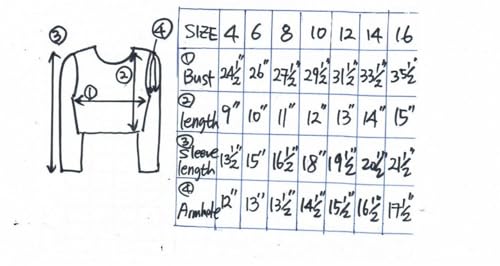 ③ ④
② 
①
SIZE 4 6 8 10 12 14 16
① Bust 24½" 26" 27½" 29½" 31½" 33½" 35½"
② length 9" 10" 11" 12" 13" 14" 15"
③ Sleeve length 13½" 15" 16½" 18" 19½" 20½" 21½"
④ Armhole 12" 13" 13½" 14½" 15½" 16½" 17½"